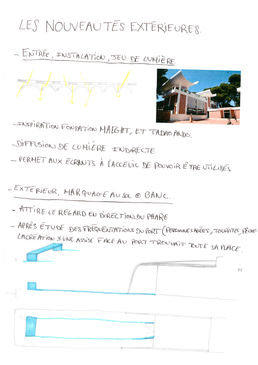 LES NOUVEAUTÉS EXTÉRIEURES.
- ENTRÉE, INSTALATION, JEU DE LUMIÈRE
- INSPIRATION FONDATION MAEGHT, ET TADAO ANDO.
- DIFFUSION DE LUMIÈRE INDIRECTE
- PERMET AUX ÉCRANTS À L'ACCEUIL DE POUVOIR ÊTRE UTILISÉS
- EXTÉRIEUR, MARQUAGE AU SOL & BANC.
- ATTIRE LE REGARD EN DIRECTION DU PHARE
- APRÈS ÉTUDE DES FRÉQUENTATIONS DU PORT (PERSONNES AGÉES, TOURISTES,
LA CRÉATION D'UNE ASSISE FACE AU PORT TROUVAIT TOUTE SA PLACE.